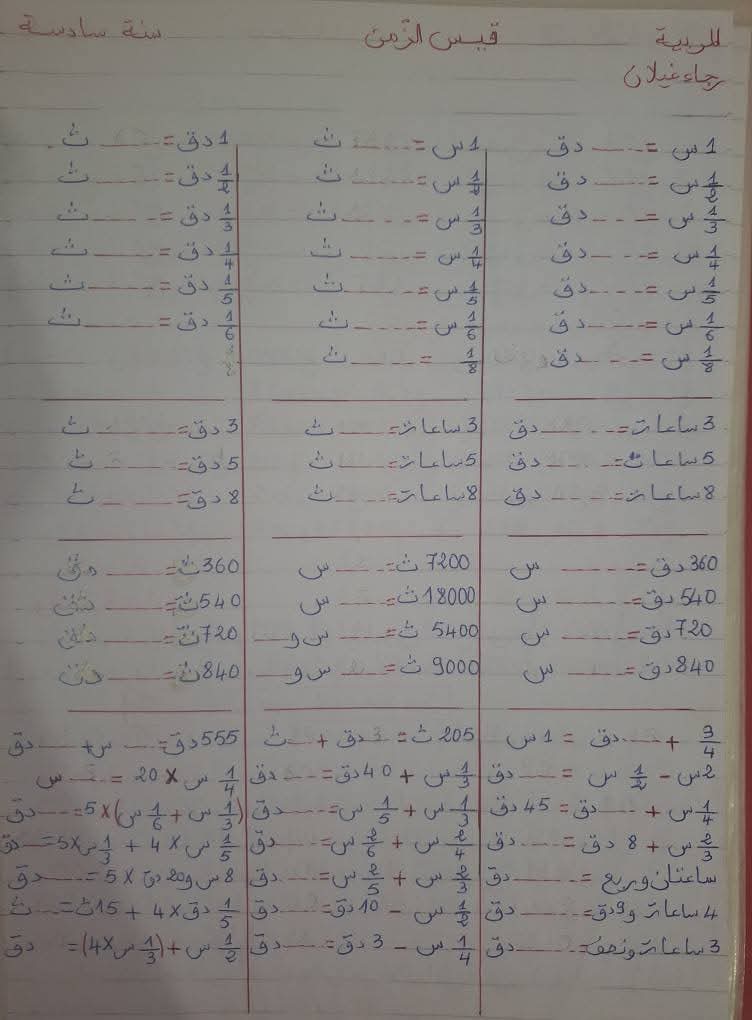 للمربية قيس الزّمن سنة سادسة
رجاء غيلان
1 س = ..... دق
1/2 س = ..... دق
1/3 س = ..... دق
1/4 س = ..... دق
1/5 س = ..... دق
1/6 س = ..... دق
1/8 س = ..... دق
3 ساعات = ..... دق
5 ساعات = ..... دق
8 ساعات = ..... دق
360 دق = ..... س
540 دق = ..... س
720 دق = ..... س
840 دق = ..... س
3/4 + ..... دق = 1 س
2 س - 1/2 س = ..... دق
1/4 س + ..... دق = 45 دق
2/3 س + 8 دق = ..... دق
ساعتان وربع = ..... دق
4 ساعات و 9 دق = ..... دق
3 ساعات ونصف = ..... دق
1 س = ..... ث
1/2 س = ..... ث
1/3 س = ..... ث
1/4 س = ..... ث
1/5 س = ..... ث
1/6 س = ..... ث
1/8 = ..... ث
3 ساعات = ..... ث
5 ساعات = ..... ث
8 ساعات = ..... ث
7200 ث = ..... س
18000 ث = ..... س
5400 ث = ..... س و .....
9000 ث = ..... س و .....
205 ث = ..... دق + ..... ث
1/3 س + 40 دق = ..... دق
1/3 س + 1/5 س = ..... دق
2/4 س + 2/6 س = ..... دق
2/3 س + 2/5 س = ..... دق
1/2 س - 10 دق = ..... دق
1/4 س - 3 دق = ..... دق
1 دق = ..... ث
1/2 دق = ..... ث
1/3 دق = ..... ث
1/4 دق = ..... ث
1/5 دق = ..... ث
1/6 دق = ..... ث
3 دق = ..... ث
5 دق = ..... ث
8 دق = ..... ث
360 ث = ..... دق
540 ث = ..... دق
720 ث = ..... دق
840 ث = ..... دق
555 دق = ..... س + ..... دق
1/4 س × 20 = ..... س
(1/3 س + 1/6 س) × 5 = ..... دق
1/5 س × 4 + 1/3 س × 5 = ..... دق
8 س و 20 دق × 5 = ..... دق
1/5 دق × 4 + 15 ث = ..... ث
1/2 س + (1/3 س × 4) = ..... دق